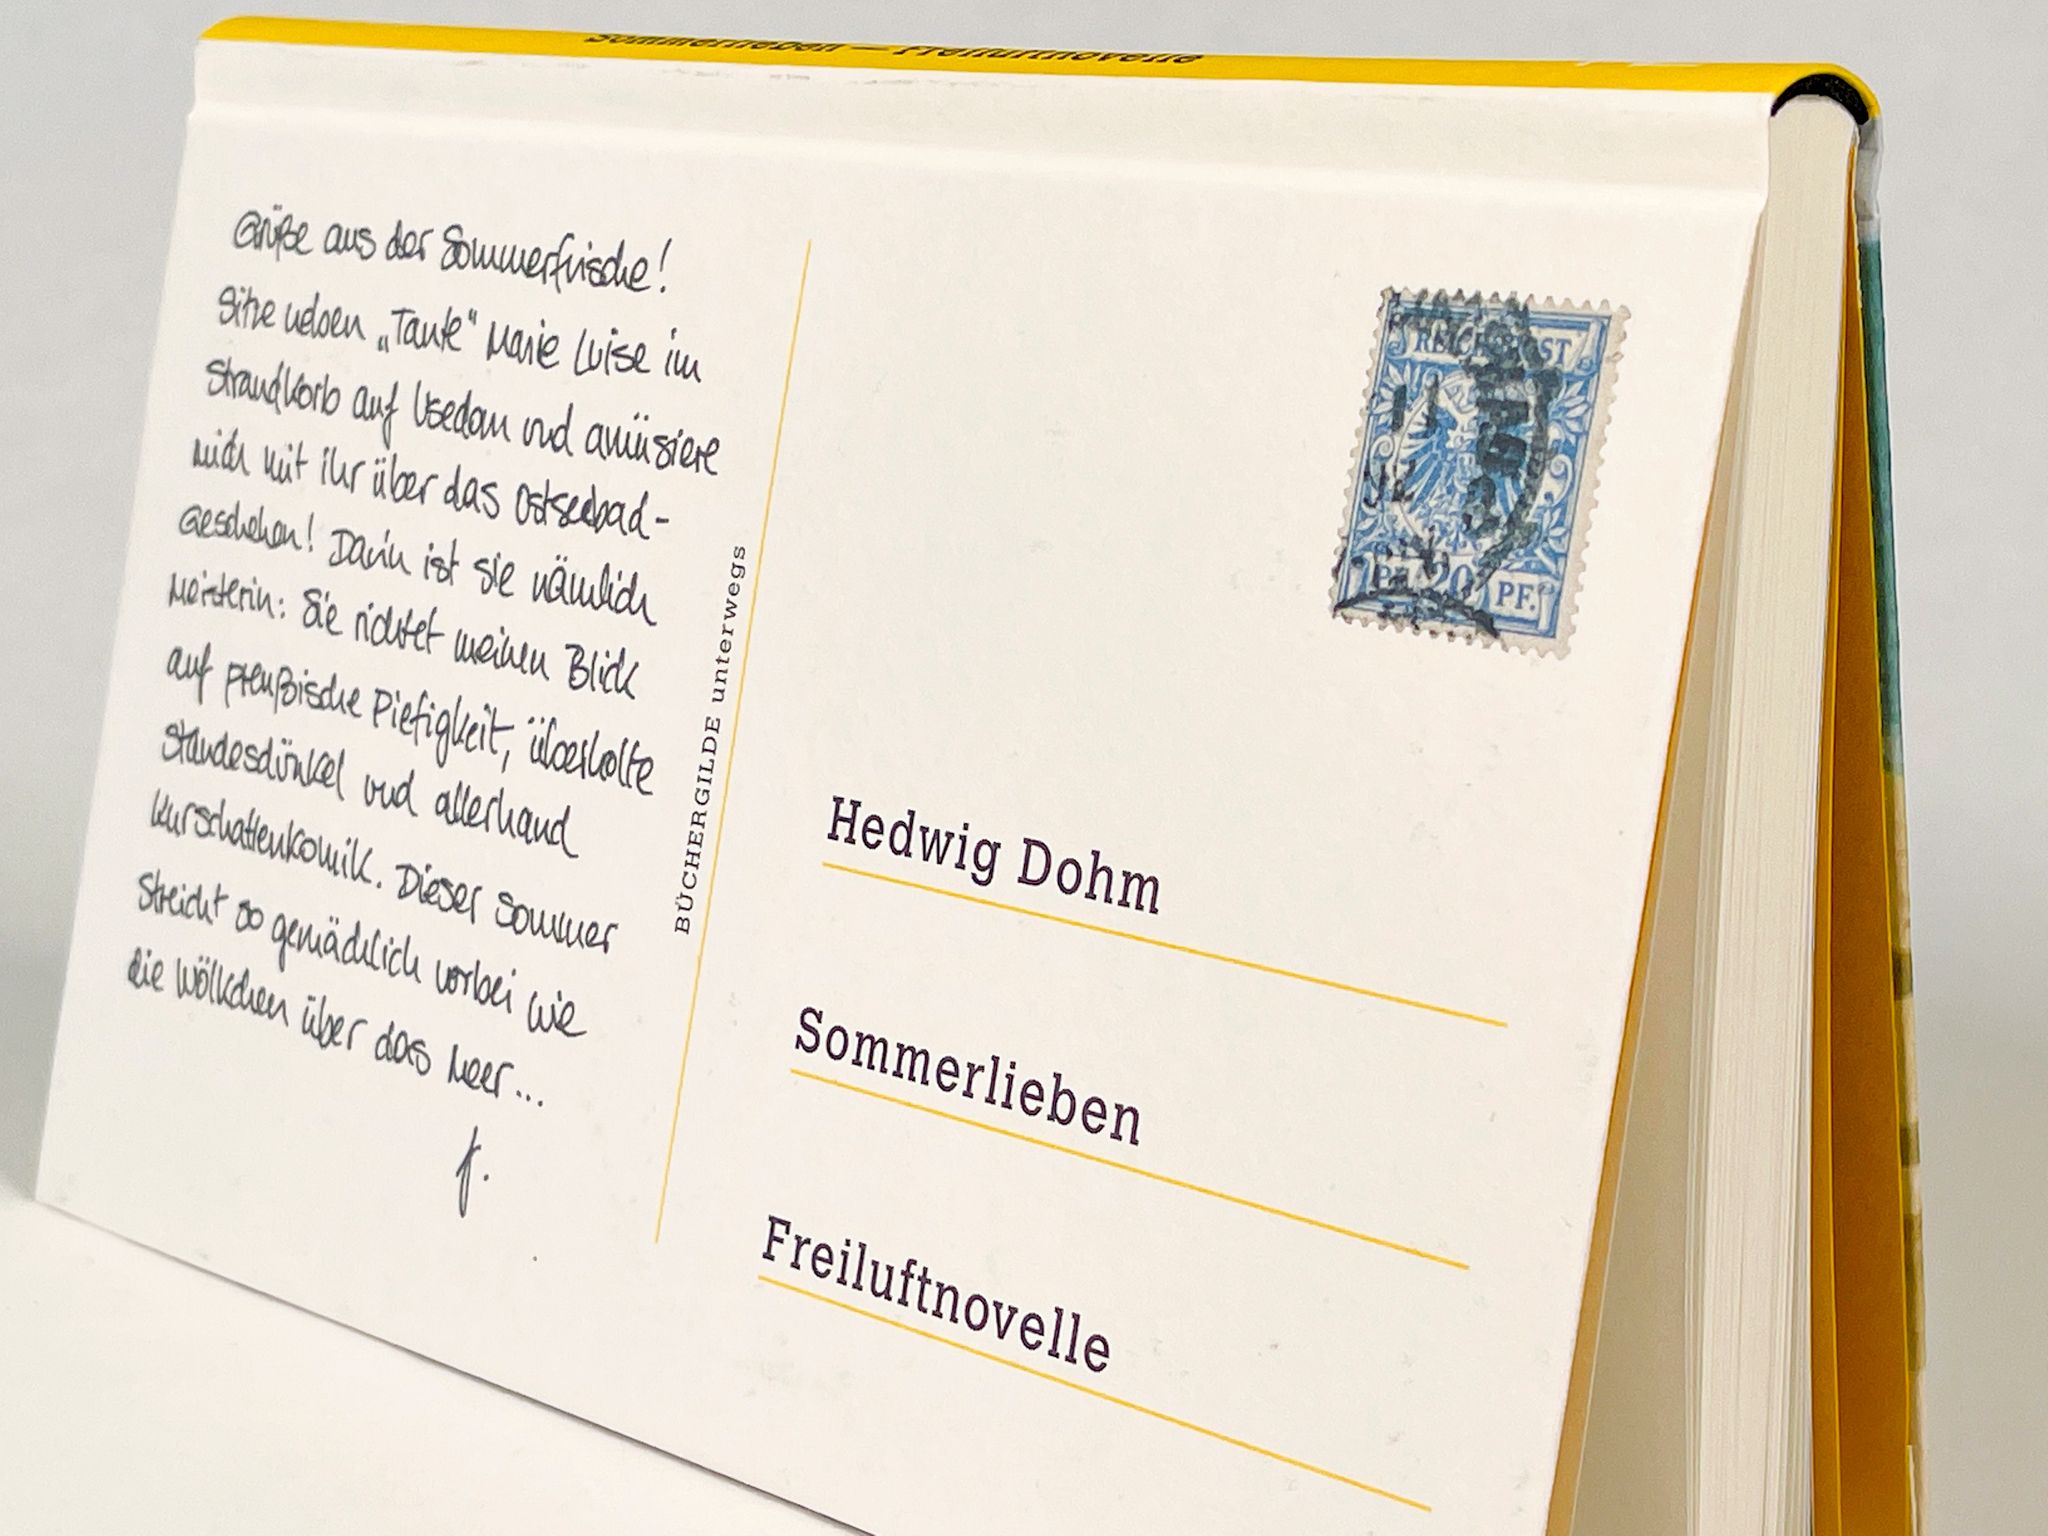 Sommerlieben — Freiluftnovelle
Grüße aus der Sommerfrische!
Sitze neben „Tante“ Marie Luise im
Strandkorb auf Usedom und amüsiere
mich mit ihr über das Ostseebad-
Geschehen! Darin ist sie nämlich
Meisterin: Sie richtet meinen Blick
auf preußische Piefigkeit, überholte
Standesdünkel und allerhand
Kurschattenkomik. Dieser Sommer
streicht so gemächlich vorbei wie
die Wölkchen über das Meer...
f.
BÜCHERGILDE unterwegs
REICHSPOST
PF. 20 PF.
Hedwig Dohm
Sommerlieben
Freiluftnovelle